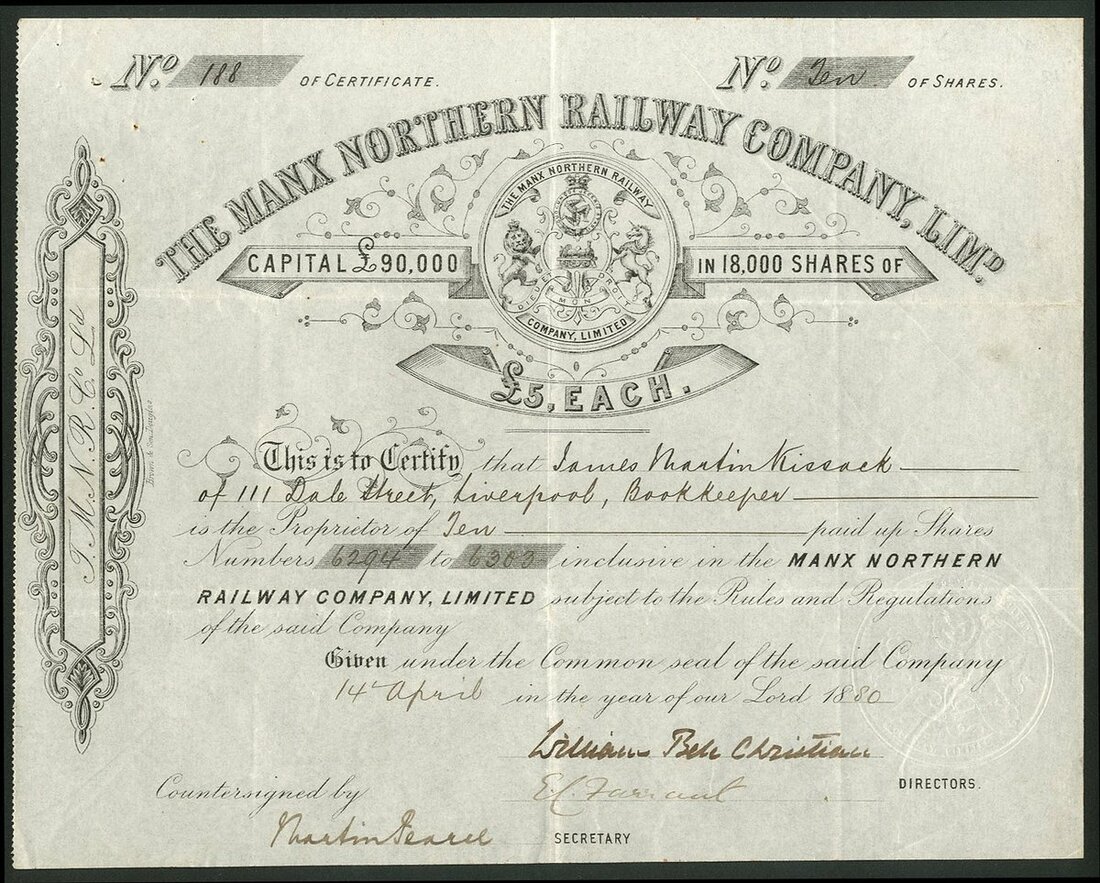 No. 188 OF CERTIFICATE.
No. Ten OF SHARES.
THE MANX NORTHERN RAILWAY COMPANY, LIMD.
THE MANX NORTHERN RAILWAY
CAPITAL £90,000
IN 18,000 SHARES OF
DIEU ET MON DROIT
COMPANY, LIMITED
£5, EACH.
T. M. N. R. Co. Ld.
This is to Certify that James Martin Kissack
of 111 Dale Street, Liverpool, Bookkeeper
is the Proprietor of Ten paid up Shares
Numbers 6294 to 6303 inclusive in the MANX NORTHERN
RAILWAY COMPANY, LIMITED subject to the Rules and Regulations
of the said Company
Given under the Common seal of the said Company
14th April in the year of our Lord 1880
William Bell Christian
E C Farrant
DIRECTORS.
Countersigned by
Martin SECRETARY